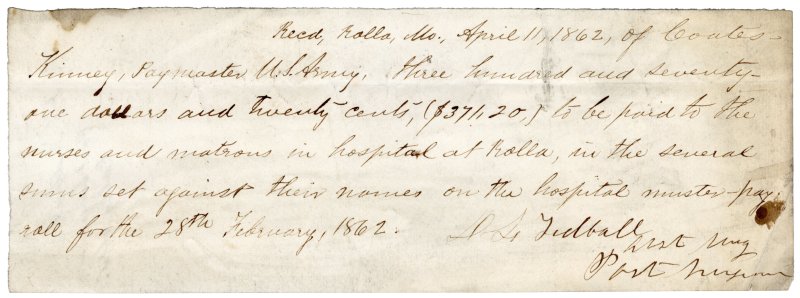 Recd, Rolla, Mo., April 11, 1862, of Coates
Kinney, Paymaster U.S. Army, three hundred and seventy-
one dollars and twenty cents, ($371,20,) to be paid to the
nurses and matrons in hospital at Rolla, in the several
sums set against their names on the hospital muster-pay-
roll for the 28th February, 1862.
Tidball
Asst Surg
Post Surgeon